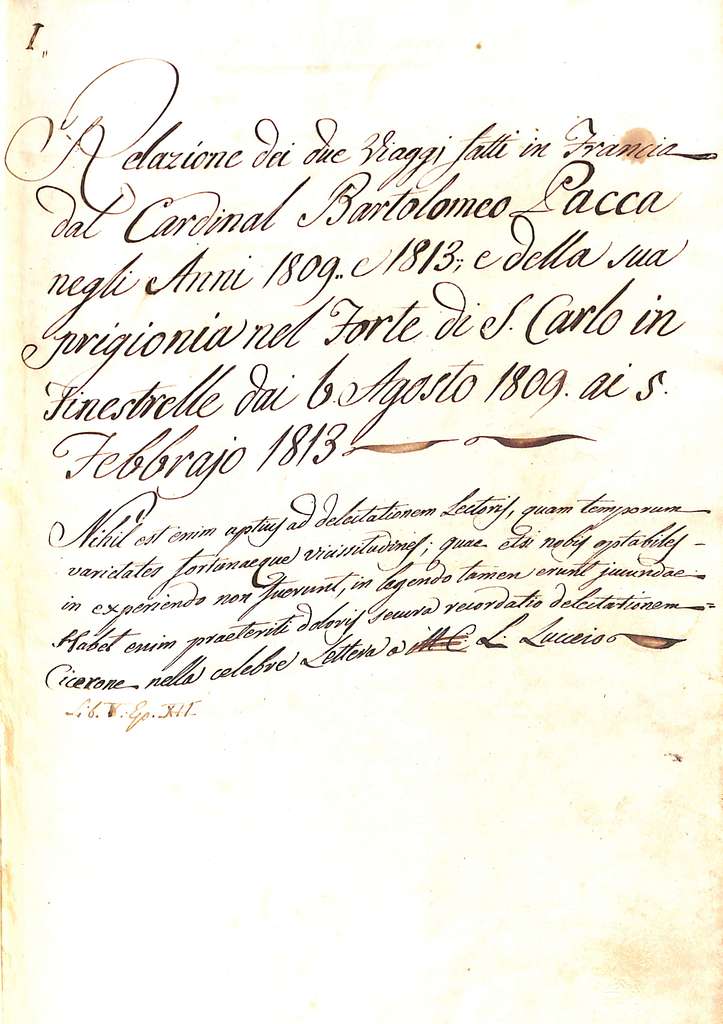 I„
Relazione dei due Viaggj fatti in Francia
dal Cardinal Bartolomeo Pacca
negli Anni 1809.. e 1813.; e della sua
prigionia nel Forte di S. Carlo in
Finestrelle dai 6. Agosto 1809. ai 5.
Febbrajo 1813
Nihil est enim aptius ad delectationem Lectoris, quam temporum
varietates fortunaeque vicissitudines; quae etsi nobis optabiles
in experiendo non fuerunt, in legendo tamen erunt jucundae.
Habet enim praeteriti doloris secura recordatio delectationem=
Cicerone nella celebre Lettera a L. Lucceio
Lib. V. Ep. XII